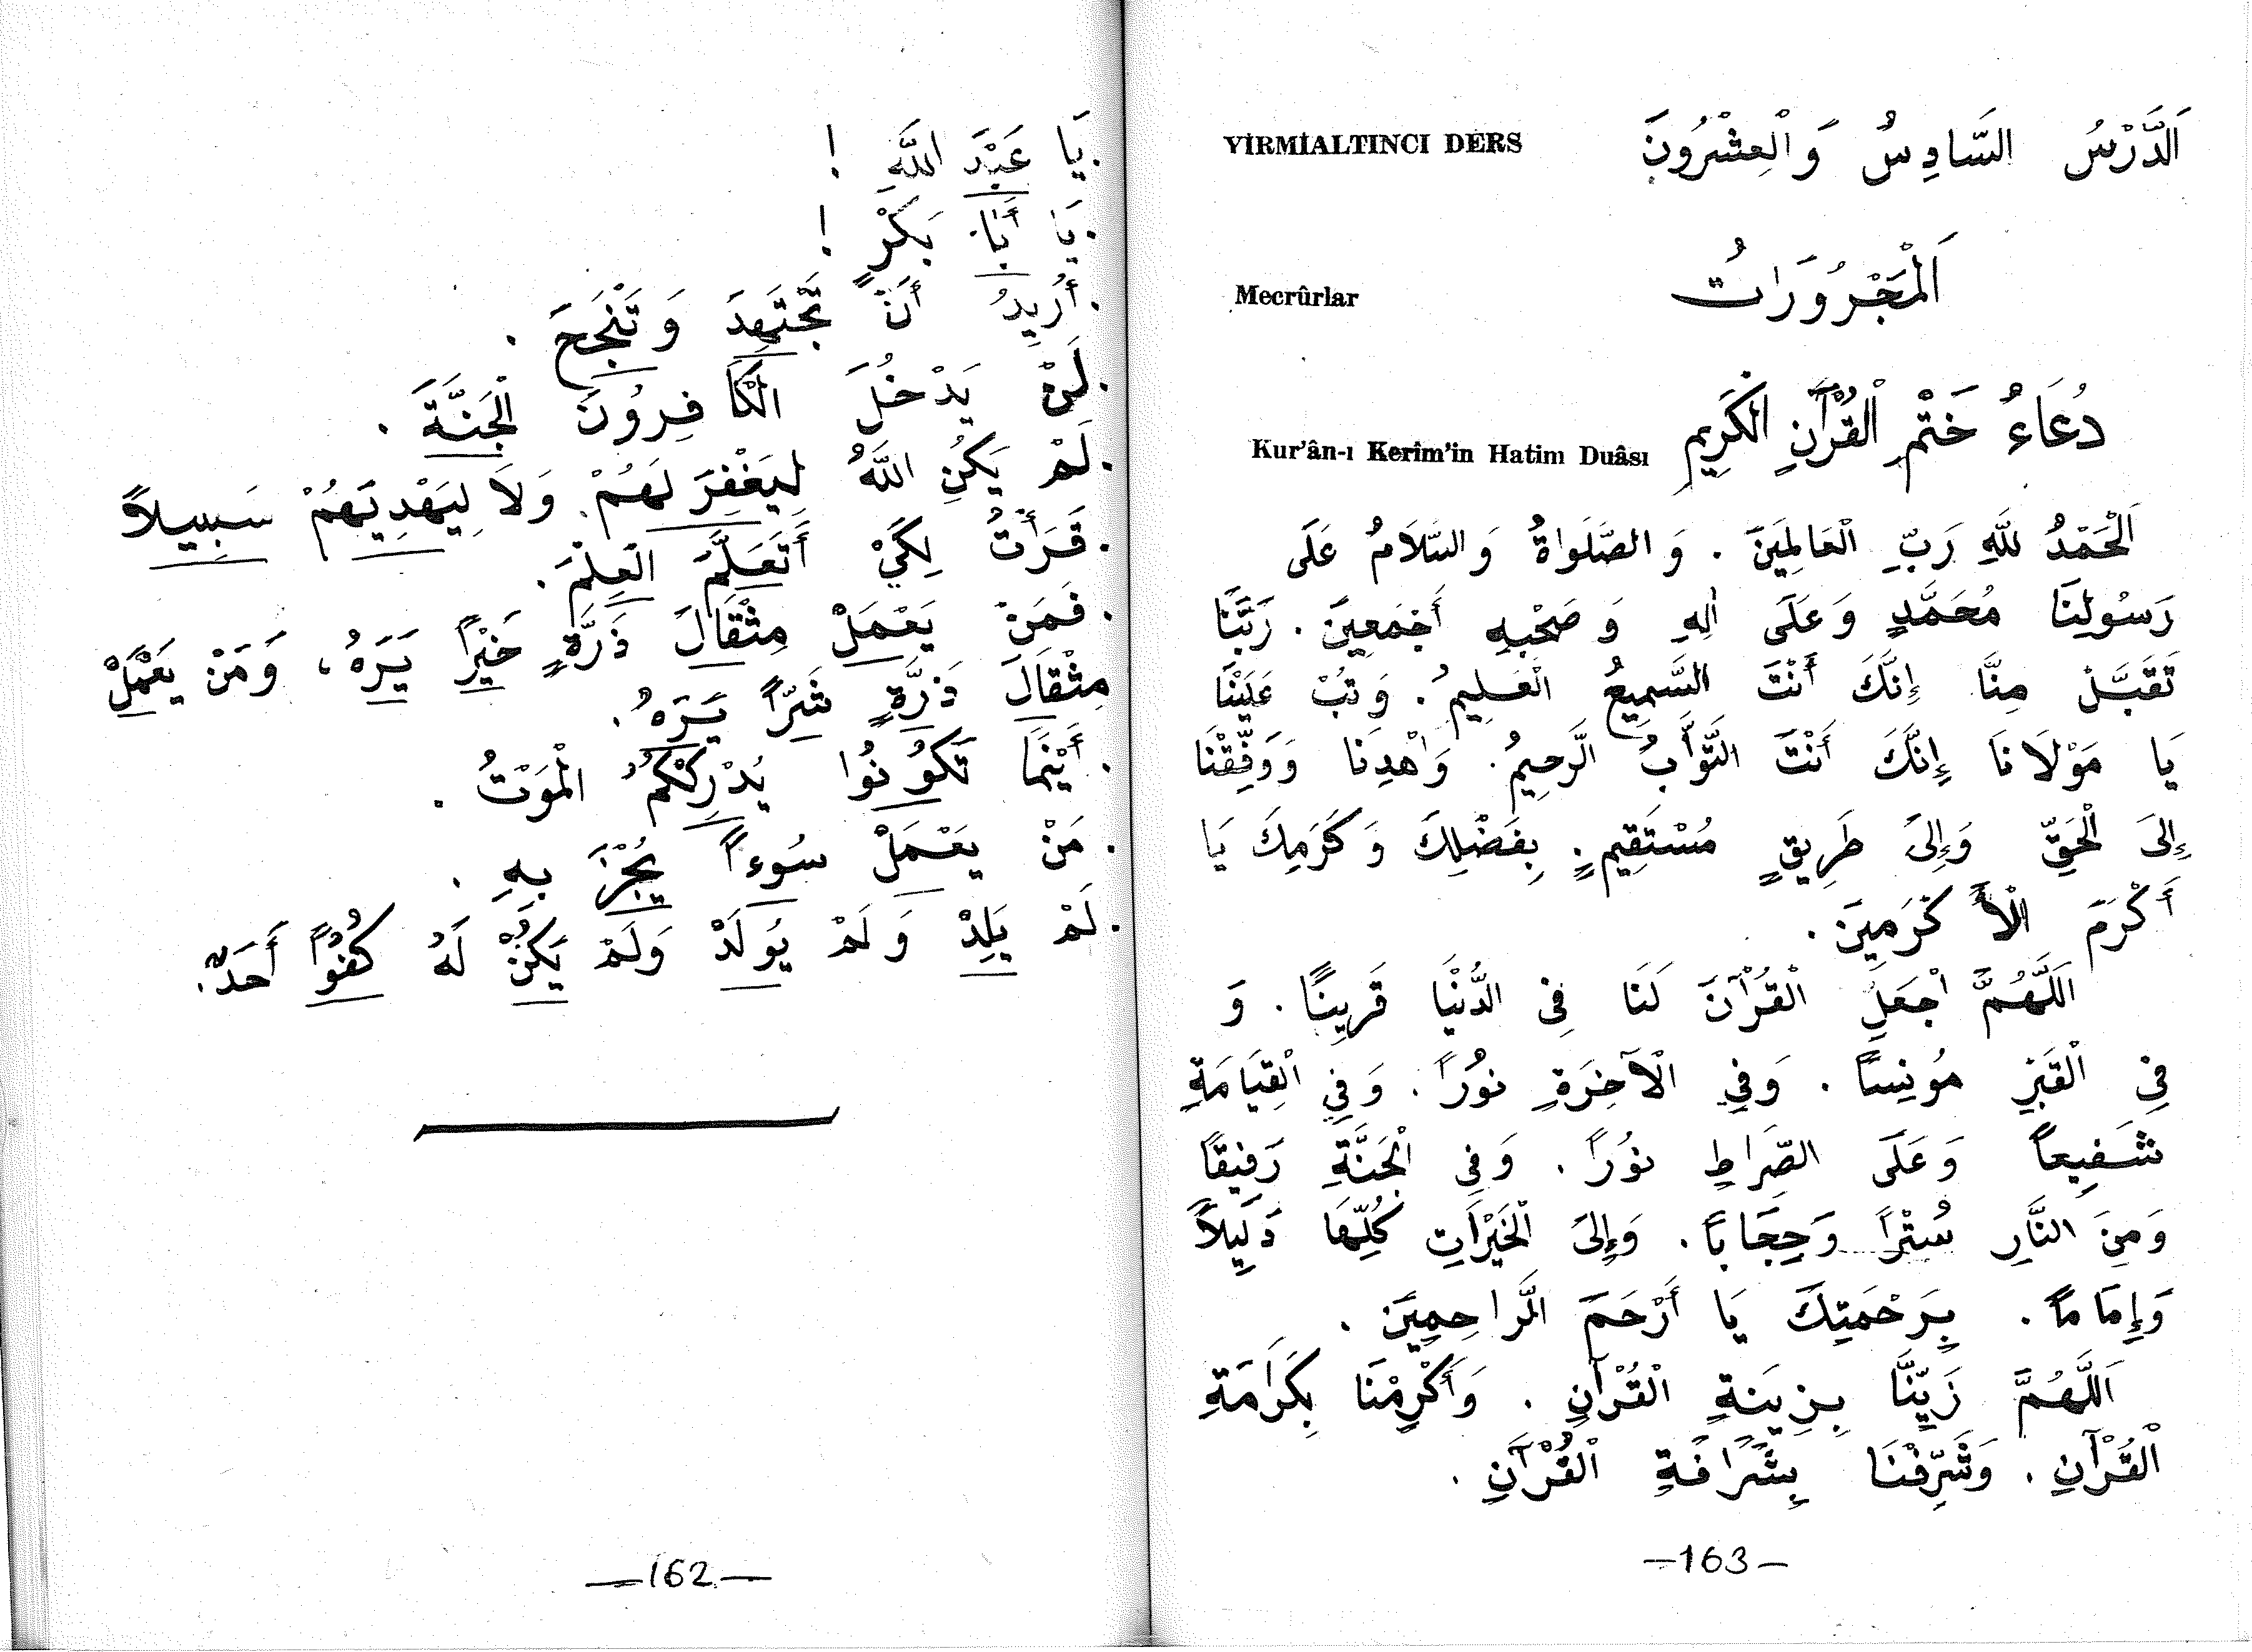 .يَا عَبْدَ اللَّهِ !
.يَا أَبَا بَكْرٍ !
.أُرِيدُ أَنْ تَجْتَهِدَ وَتَنْجَحَ .
.لَنْ يَدْخُلَ الْكَافِرُونَ الْجَنَّةَ .
.لَمْ يَكُنِ اللَّهُ لِيَغْفِرَ لَهُمْ وَلَا لِيَهْدِيَهُمْ سَبِيلاً
.قَرَأْتُ لِكَيْ أَتَعَلَّمَ الْعِلْمَ.
.فَمَنْ يَعْمَلْ مِثْقَالَ ذَرَّةٍ خَيْراً يَرَهُ، وَمَنْ يَعْمَلْ
مِثْقَالَ ذَرَّةٍ شَرّاً يَرَهُ.
.أَيْنَمَا تَكُونُوا يُدْرِكْكُمُ الْمَوْتُ .
.مَنْ يَعْمَلْ سُوءاً يُجْزَ بِهِ .
.لَمْ يَلِدْ وَلَمْ يُولَدْ وَلَمْ يَكُنْ لَهُ كُفُوًا أَحَدٌ.
—162—
YİRMİALTINCI DERS اَلدَّرْسُ السَّادِسُ وَالْعِشْرُونَ
Mecrûrlar اَلْمَجْرُورَاتُ
Kur'ân-ı Kerîm'in Hatim Duâsı دُعَاءُ خَتْمِ الْقُرْآنِ الْكَرِيمِ
اَلْحَمْدُ لِلَّهِ رَبِّ الْعَالَمِينَ . وَالصَّلَوَاةُ وَالسَّلَامُ عَلَى
رَسُولِنَا مُحَمَّدٍ وَعَلَى اٰلِهِ وَصَحْبِهِ أَجْمَعِينَ . رَبَّنَا
تَقَبَّلْ مِنَّا إِنَّكَ أَنْتَ السَّمِيعُ الْعَلِيمُ . وَتُبْ عَلَيْنَا
يَا مَوْلَانَا إِنَّكَ أَنْتَ التَّوَّابُ الرَّحِيمُ . وَاهْدِنَا وَوَفِّقْنَا
إِلَى الْحَقِّ وَإِلَى طَرِيقٍ مُسْتَقِيمٍ . بِفَضْلِكَ وَكَرَمِكَ يَا
أَكْرَمَ الْأَكْرَمِينَ .
اَللَّهُمَّ اجْعَلِ الْقُرْآنَ لَنَا فِى الدُّنْيَا قَرِينًا . وَ
فِى الْقَبْرِ مُونِساً . وَفِى الْآخِرَةِ نُوراً . وَفِي الْقِيَامَةِ
شَفِيعاً وَعَلَى الصِّرَاطِ نُوراً . وَفِى الْجَنَّةِ رَفِيقًا
وَمِنَ النَّارِ سِتْراً وَحِجَاباً . وَإِلَى الْخَيْرَاتِ كُلِّهَا دَلِيلاً
وَإِمَاماً . بِرَحْمَتِكَ يَا أَرْحَمَ الرَّاحِمِينَ .
اَللَّهُمَّ زَيِّنَّا بِزِينَةِ الْقُرْآنِ . وَأَكْرِمْنَا بِكَرَامَةِ
الْقُرْآنِ . وَشَرِّفْنَا بِشَرَافَةِ الْقُرْآنِ .
—163—